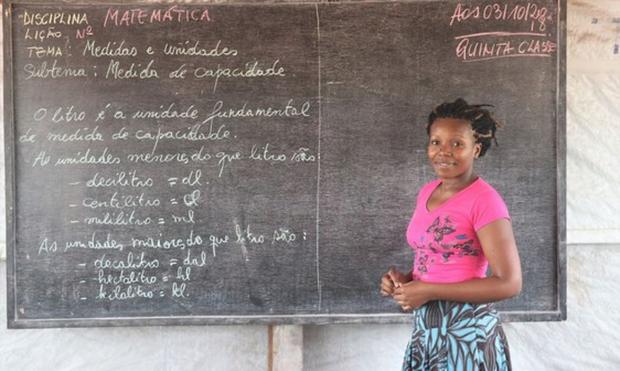 DISCIPLINA MATEMÁTICA
LIÇÃO Nº
TEMA: Medidas e unidades
Subtema: Medida de capacidade
O litro é a unidade fundamental
de medida de capacidade.
As unidades menores do que litro são:
- decilitro = dl.
- centilitro = cl
- mililitro = ml
As unidades maiores do que litro são:
- decalitro = dal
- hectalitro = hl
- kilolitro = kl.
Aos 03/10/2018
QUINTA CLASSE